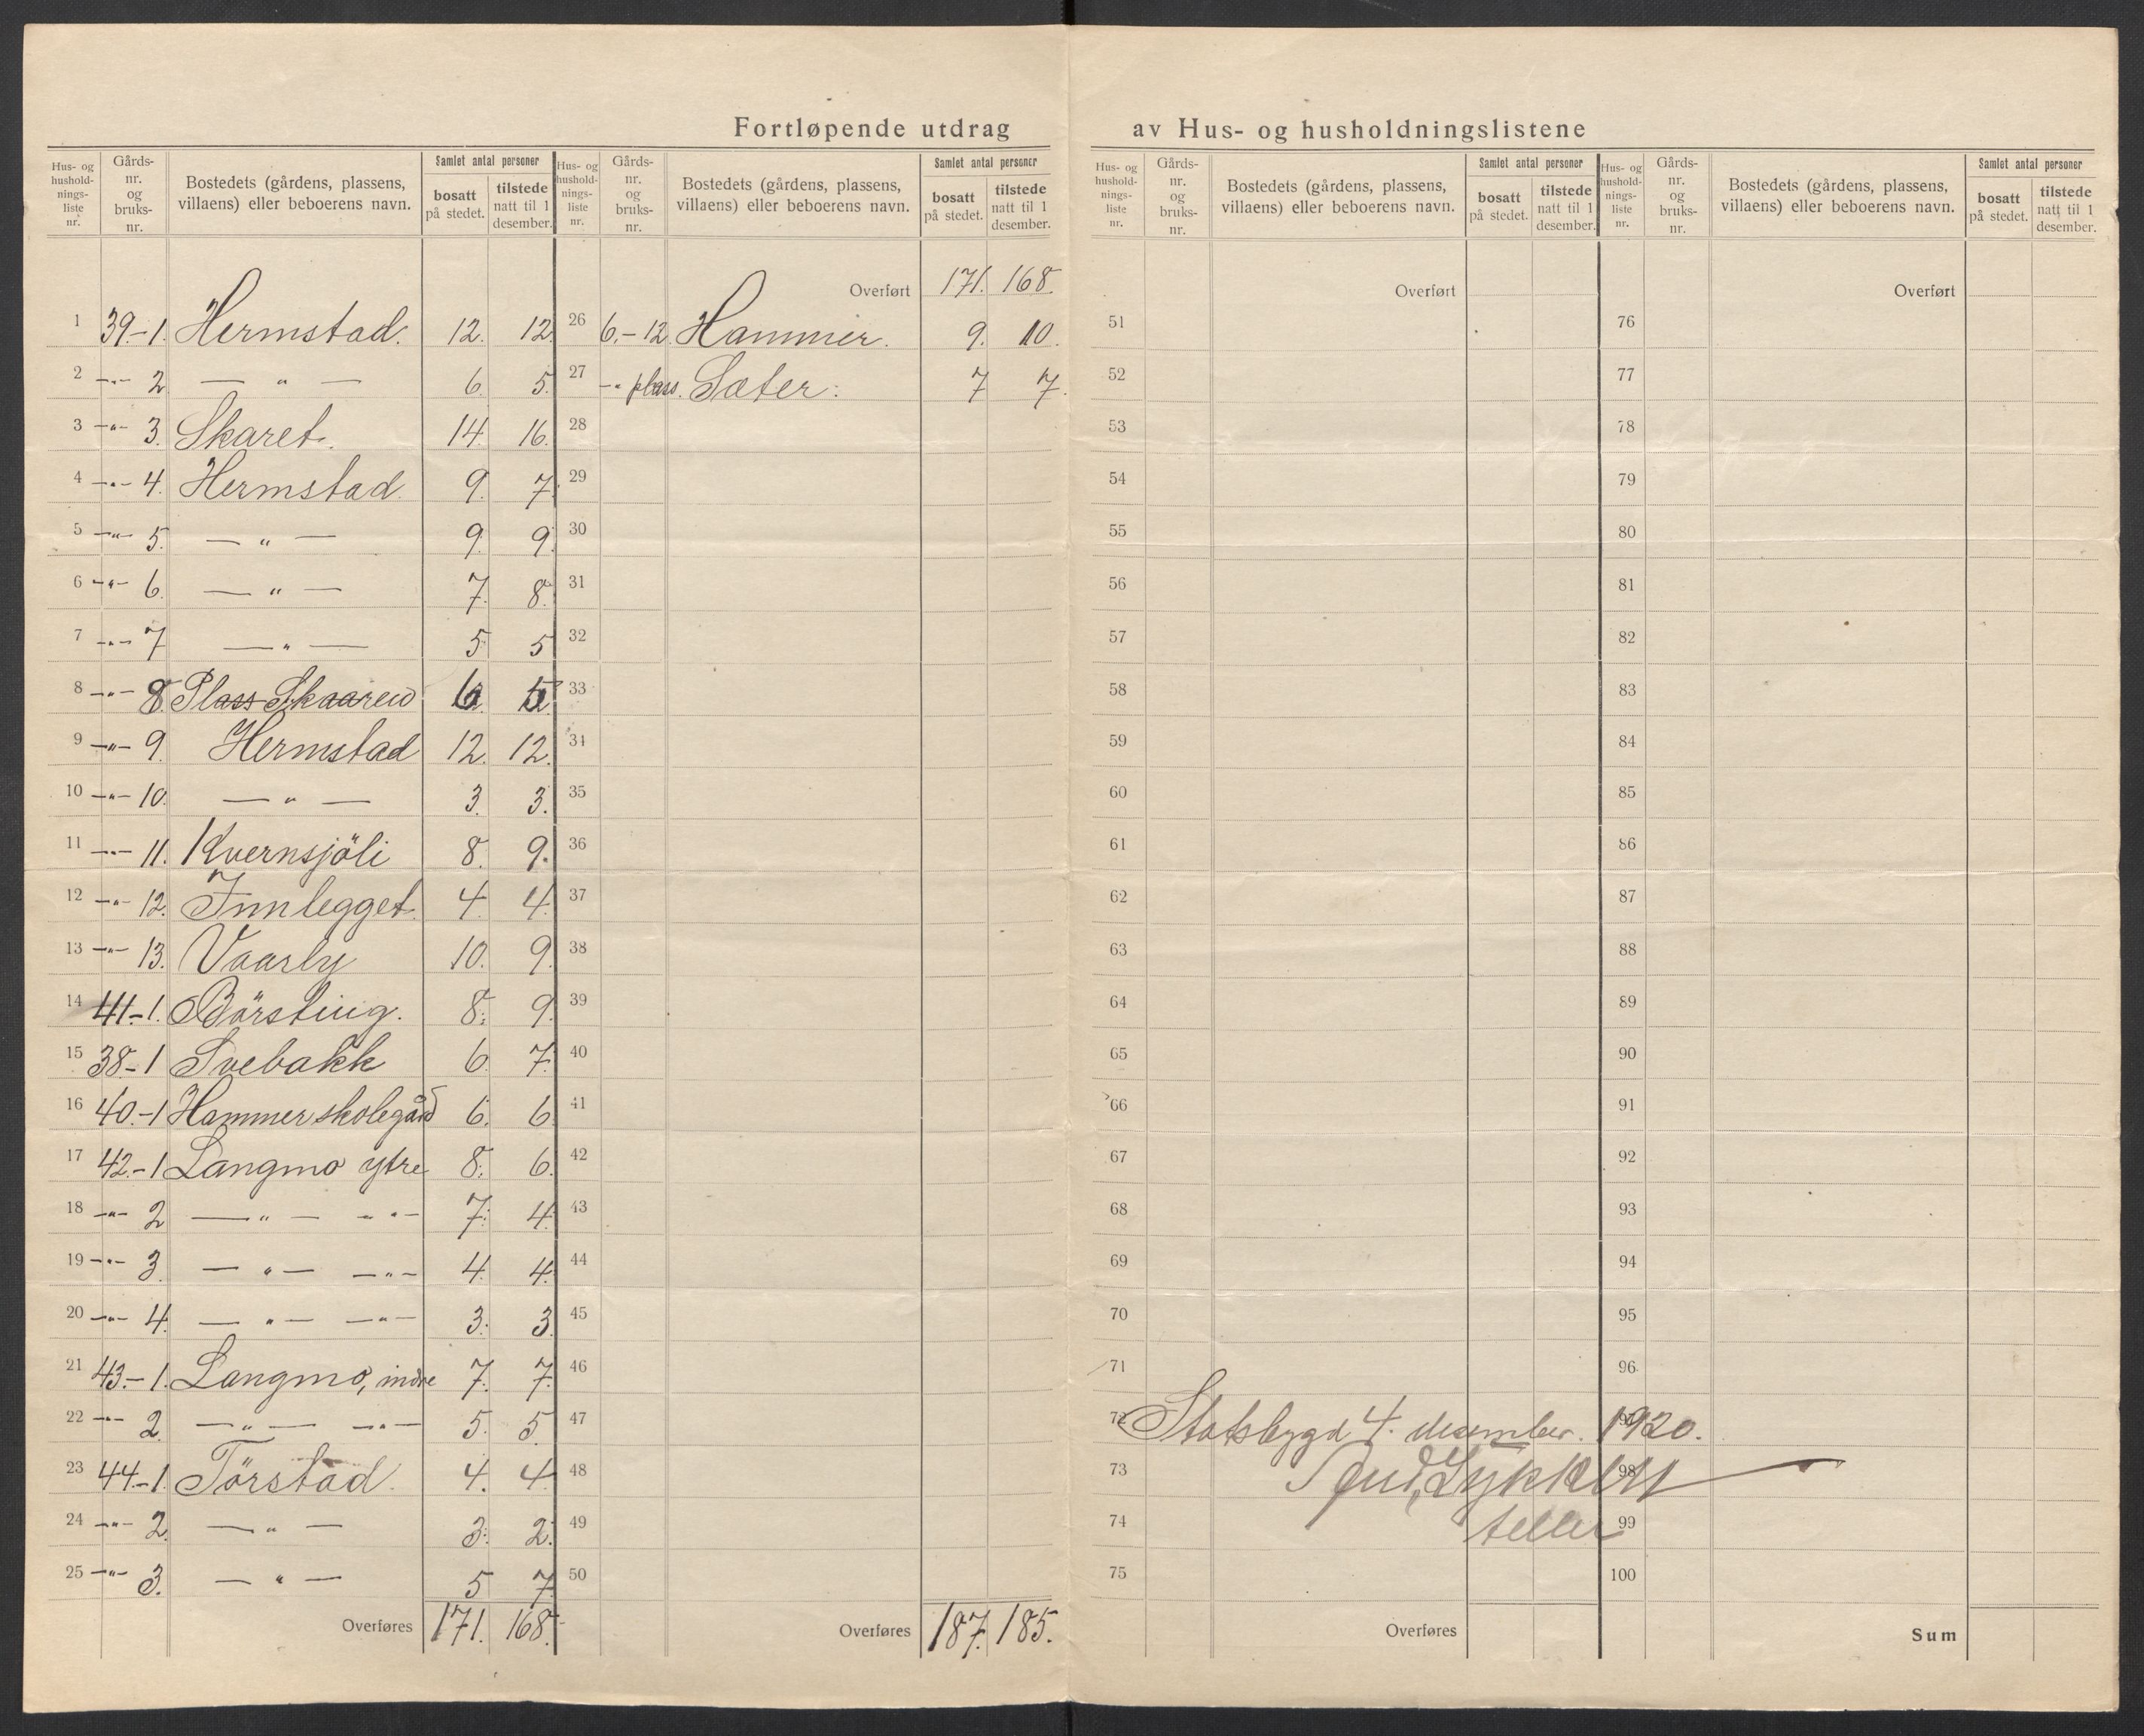 Fortløpende utdrag av Hus- og husholdningslistene
Hus- og hushold- nings- liste nr. Gårds- nr. og bruks- nr. Bostedets (gårdens, plassens, villaens) eller beboerens navn. Samlet antal personer bosatt på stedet. tilstede natt til 1 desember.
1 39.-1. Hermstad. 12. 12.
2 -"- 2. — " — 6. 5.
3 -"- 3. Skaret. 14. 16.
4 -"- 4. Hermstad. 9. 7.
5 -"- 5. — " — 9. 9.
6 -"- 6. — " — 7. 8.
7 -"- 7 — " — 5. 5
8 -"- 8. Plass Skaaren
9 -"- 9. Hermstad 12. 12.
10 -"- 10. — " — 3. 3.
11 -"- 11. Kvernsjöli 8. 9.
12 -"- 12. Innlegget. 4. 4.
13 -"- 13. Vaarly 10. 9.
14 41.-1. Börsting. 8. 9.
15 38.-1 Svebakk 6. 7.
16 40.-1 Hammer skolegård 6. 6.
17 42.-1 Langmo ytre 8. 6.
18 -"- 2 — " — -"- 7. 4.
19 -"- 3. — " — -"- 4. 4.
20 -"- 4. — " — -"- 3. 3.
21 43.-1. Langmo, indre 7. 7.
22 -"- 2. — " — -"- 5. 5.
23 44.-1. Törstad. 4. 4.
24 -"- 2. — " — 3. 2.
25 -"- 3. — " — 5 7.
Overføres 171. 168.
Hus- og hushold- nings- liste nr. Gårds- nr. og bruks- nr. Bostedets (gårdens, plassens, villaens) eller beboerens navn. Samlet antal personer bosatt på stedet. tilstede natt til 1 desember.
Overført 171. 168.
26 6.-12. Hammer. 9. 10.
27 -" plass. Sæter. 7 7.
28
29
30
31
32
33
34
35
36
37
38
39
40
41
42
43
44
45
46
47
48
49
50
Overføres 187. 185.
Hus- og hushold- nings- liste nr. Gårds- nr. og bruks- nr. Bostedets (gårdens, plassens, villaens) eller beboerens navn. Samlet antal personer bosatt på stedet. tilstede natt til 1 desember.
Overført
51
52
53
54
55
56
57
58
59
60
61
62
63
64
65
66
67
68
69
70
71
72 Statsbygd 4. desember. 1920.
73
74 teller
75
Overføres
Hus- og hushold- nings- liste nr. Gårds- nr. og bruks- nr. Bostedets (gårdens, plassens, villaens) eller beboerens navn. Samlet antal personer bosatt på stedet. tilstede natt til 1 desember.
Overført
76
77
78
79
80
81
82
83
84
85
86
87
88
89
90
91
92
93
94
95
96
97
98
99
100
Sum